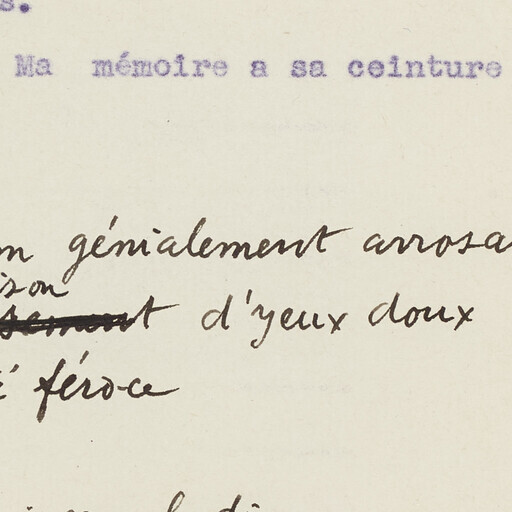 s.
Ma mémoire a sa ceinture
génialement arrosa
ison
d'yeux doux
féroce